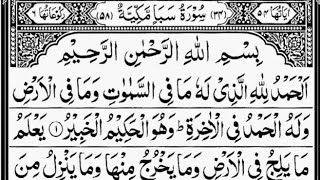 اٰیَاتُهَا ٥٤ (٣٤) سُوْرَةُ سَبَاٍ مَّكِّيَّةٌ (٥٨) رُكُوْعَاتُهَا ٦
بِسْمِ اللّٰهِ الرَّحْمٰنِ الرَّحِيْمِ
اَلْحَمْدُ لِلّٰهِ الَّذِیْ لَهٗ مَا فِی السَّمٰوٰتِ وَمَا فِی الْاَرْضِ
وَلَهُ الْحَمْدُ فِی الْاٰخِرَةِ ؕ وَهُوَ الْحَكِیْمُ الْخَبِیْرُ ۝١ یَعْلَمُ
مَا یَلِجُ فِی الْاَرْضِ وَمَا یَخْرُجُ مِنْهَا وَمَا یَنْزِلُ مِنَ